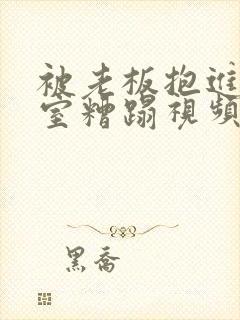 被老板抱進
室糟蹋視頻
黑喬